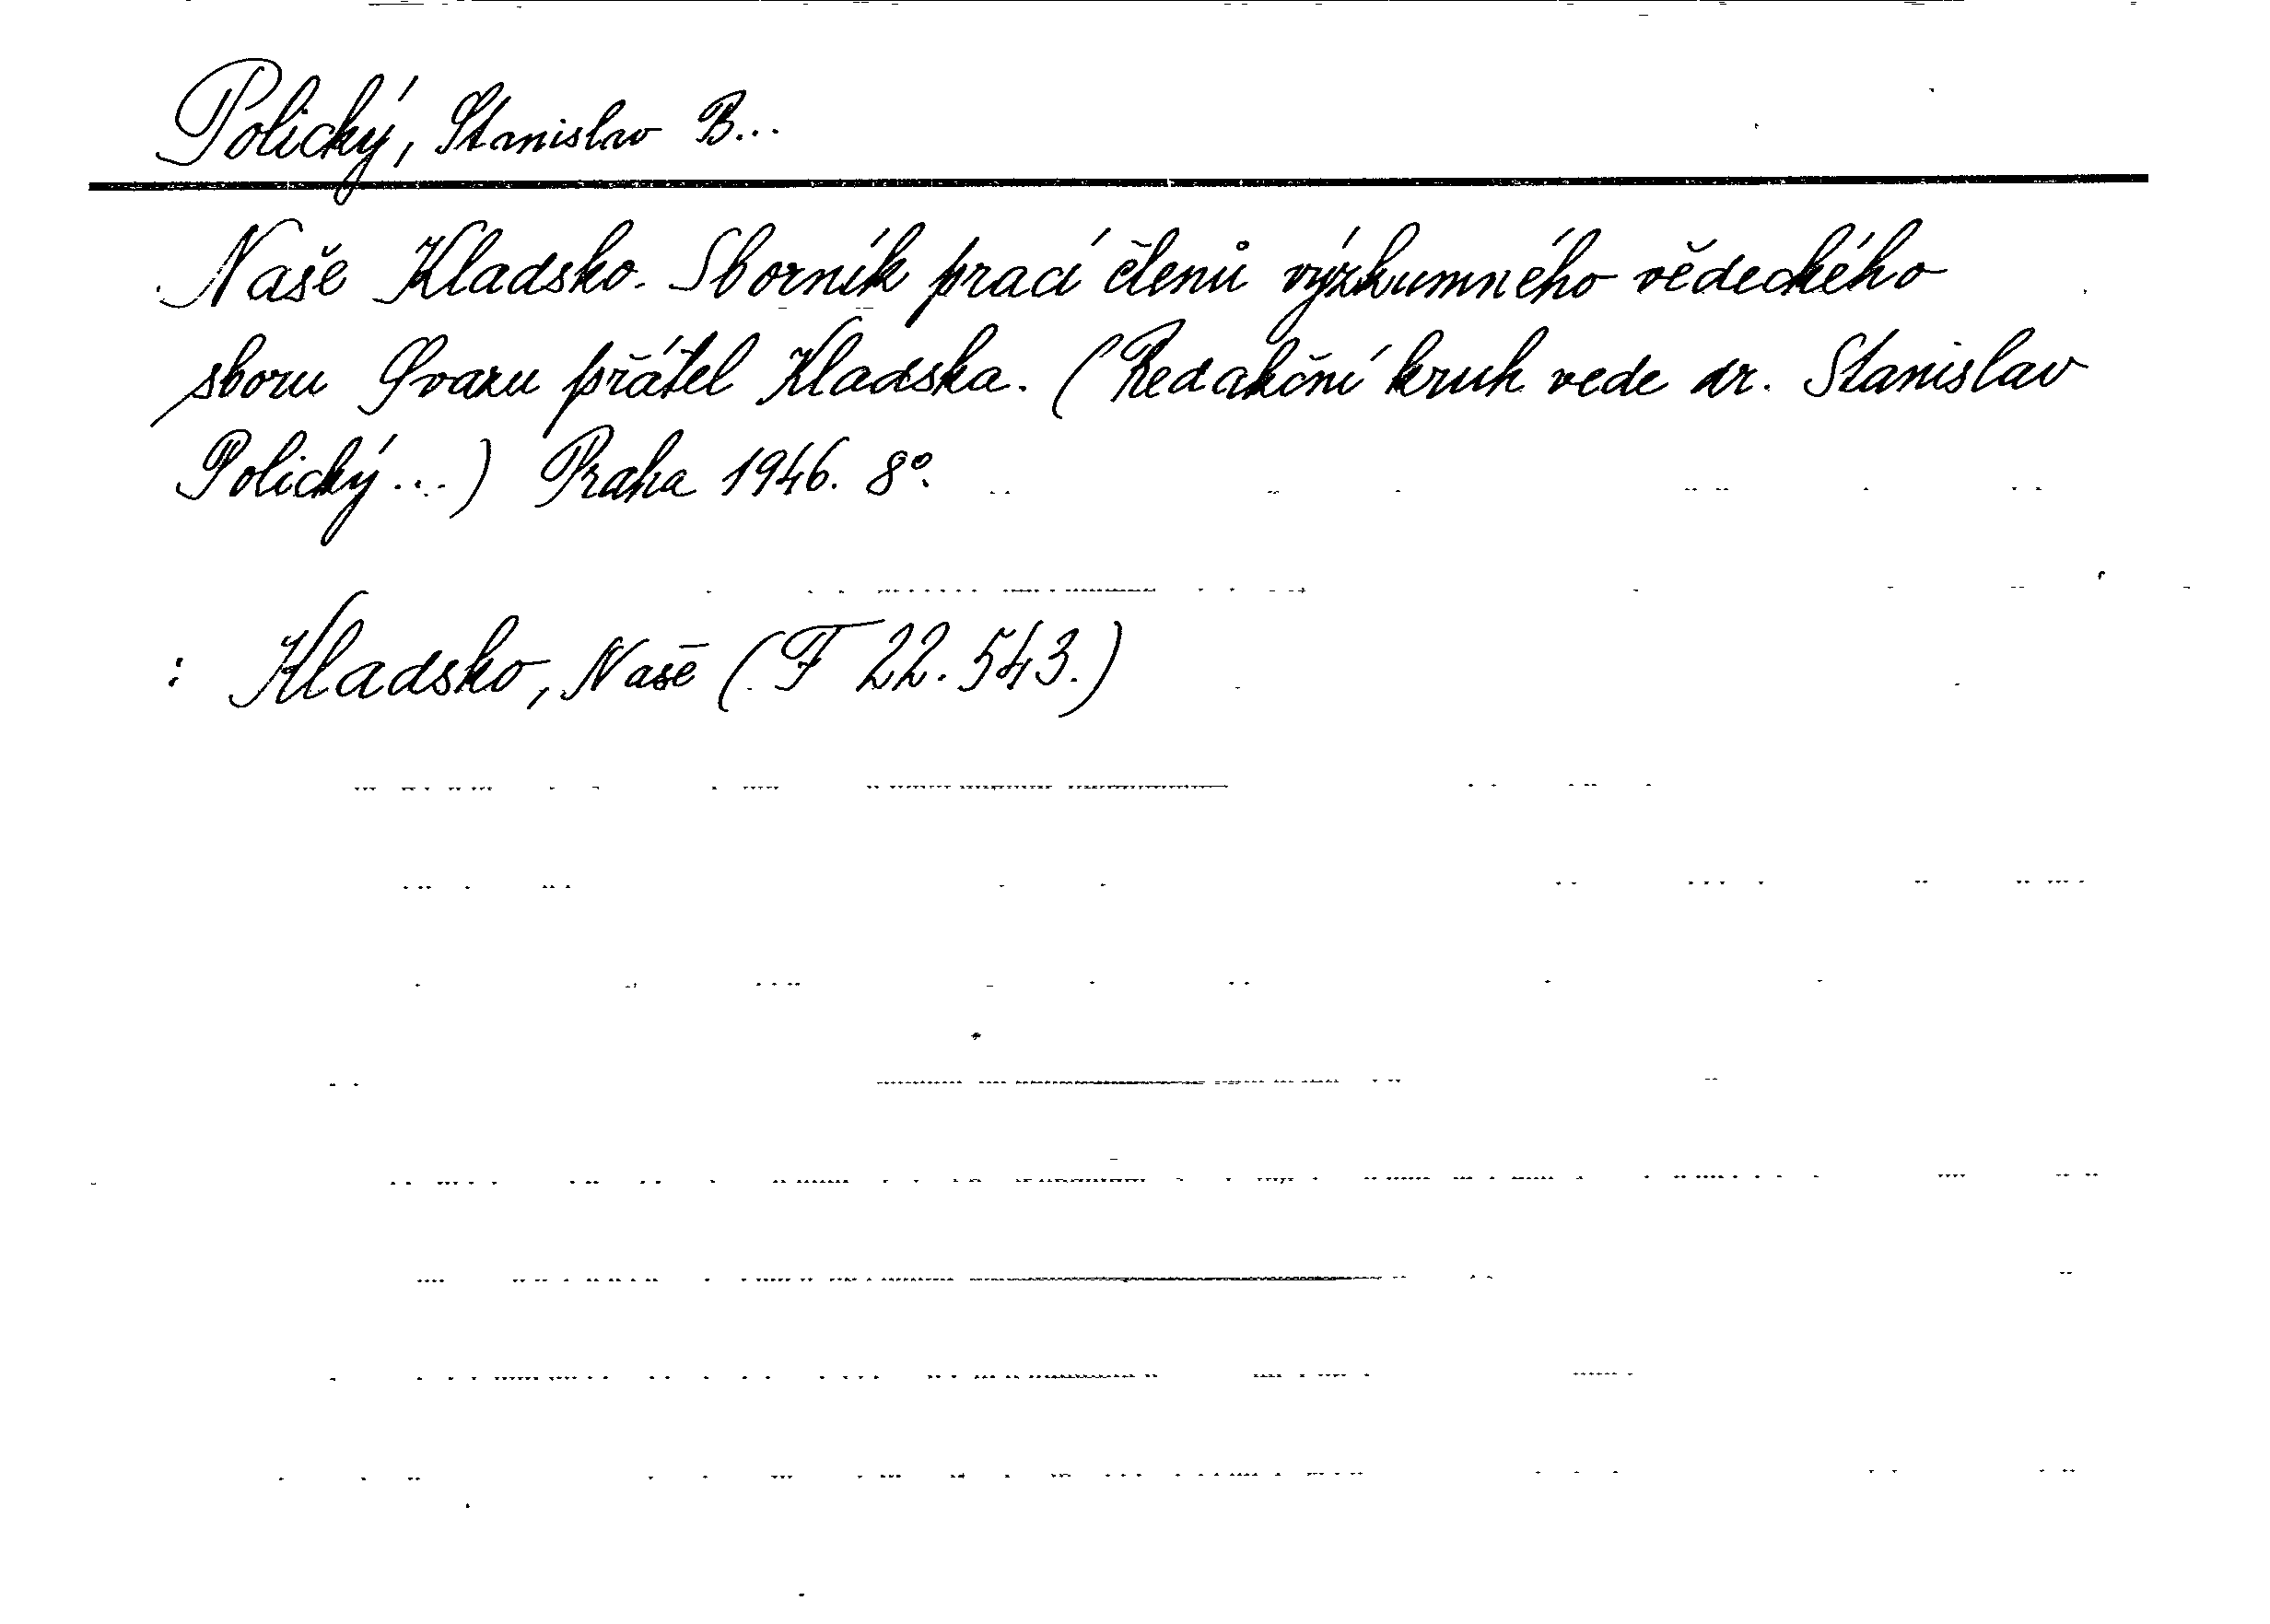 Polický, Stanislav B...
Naše Kladsko. Sborník prací členů výzkumného vědeckého
sboru Svazu přátel Kladska. (Redakční kruh vede dr. Stanislav
Polický...) Praha 1946. 8°.
: Kladsko, Naše (F 22.543.)